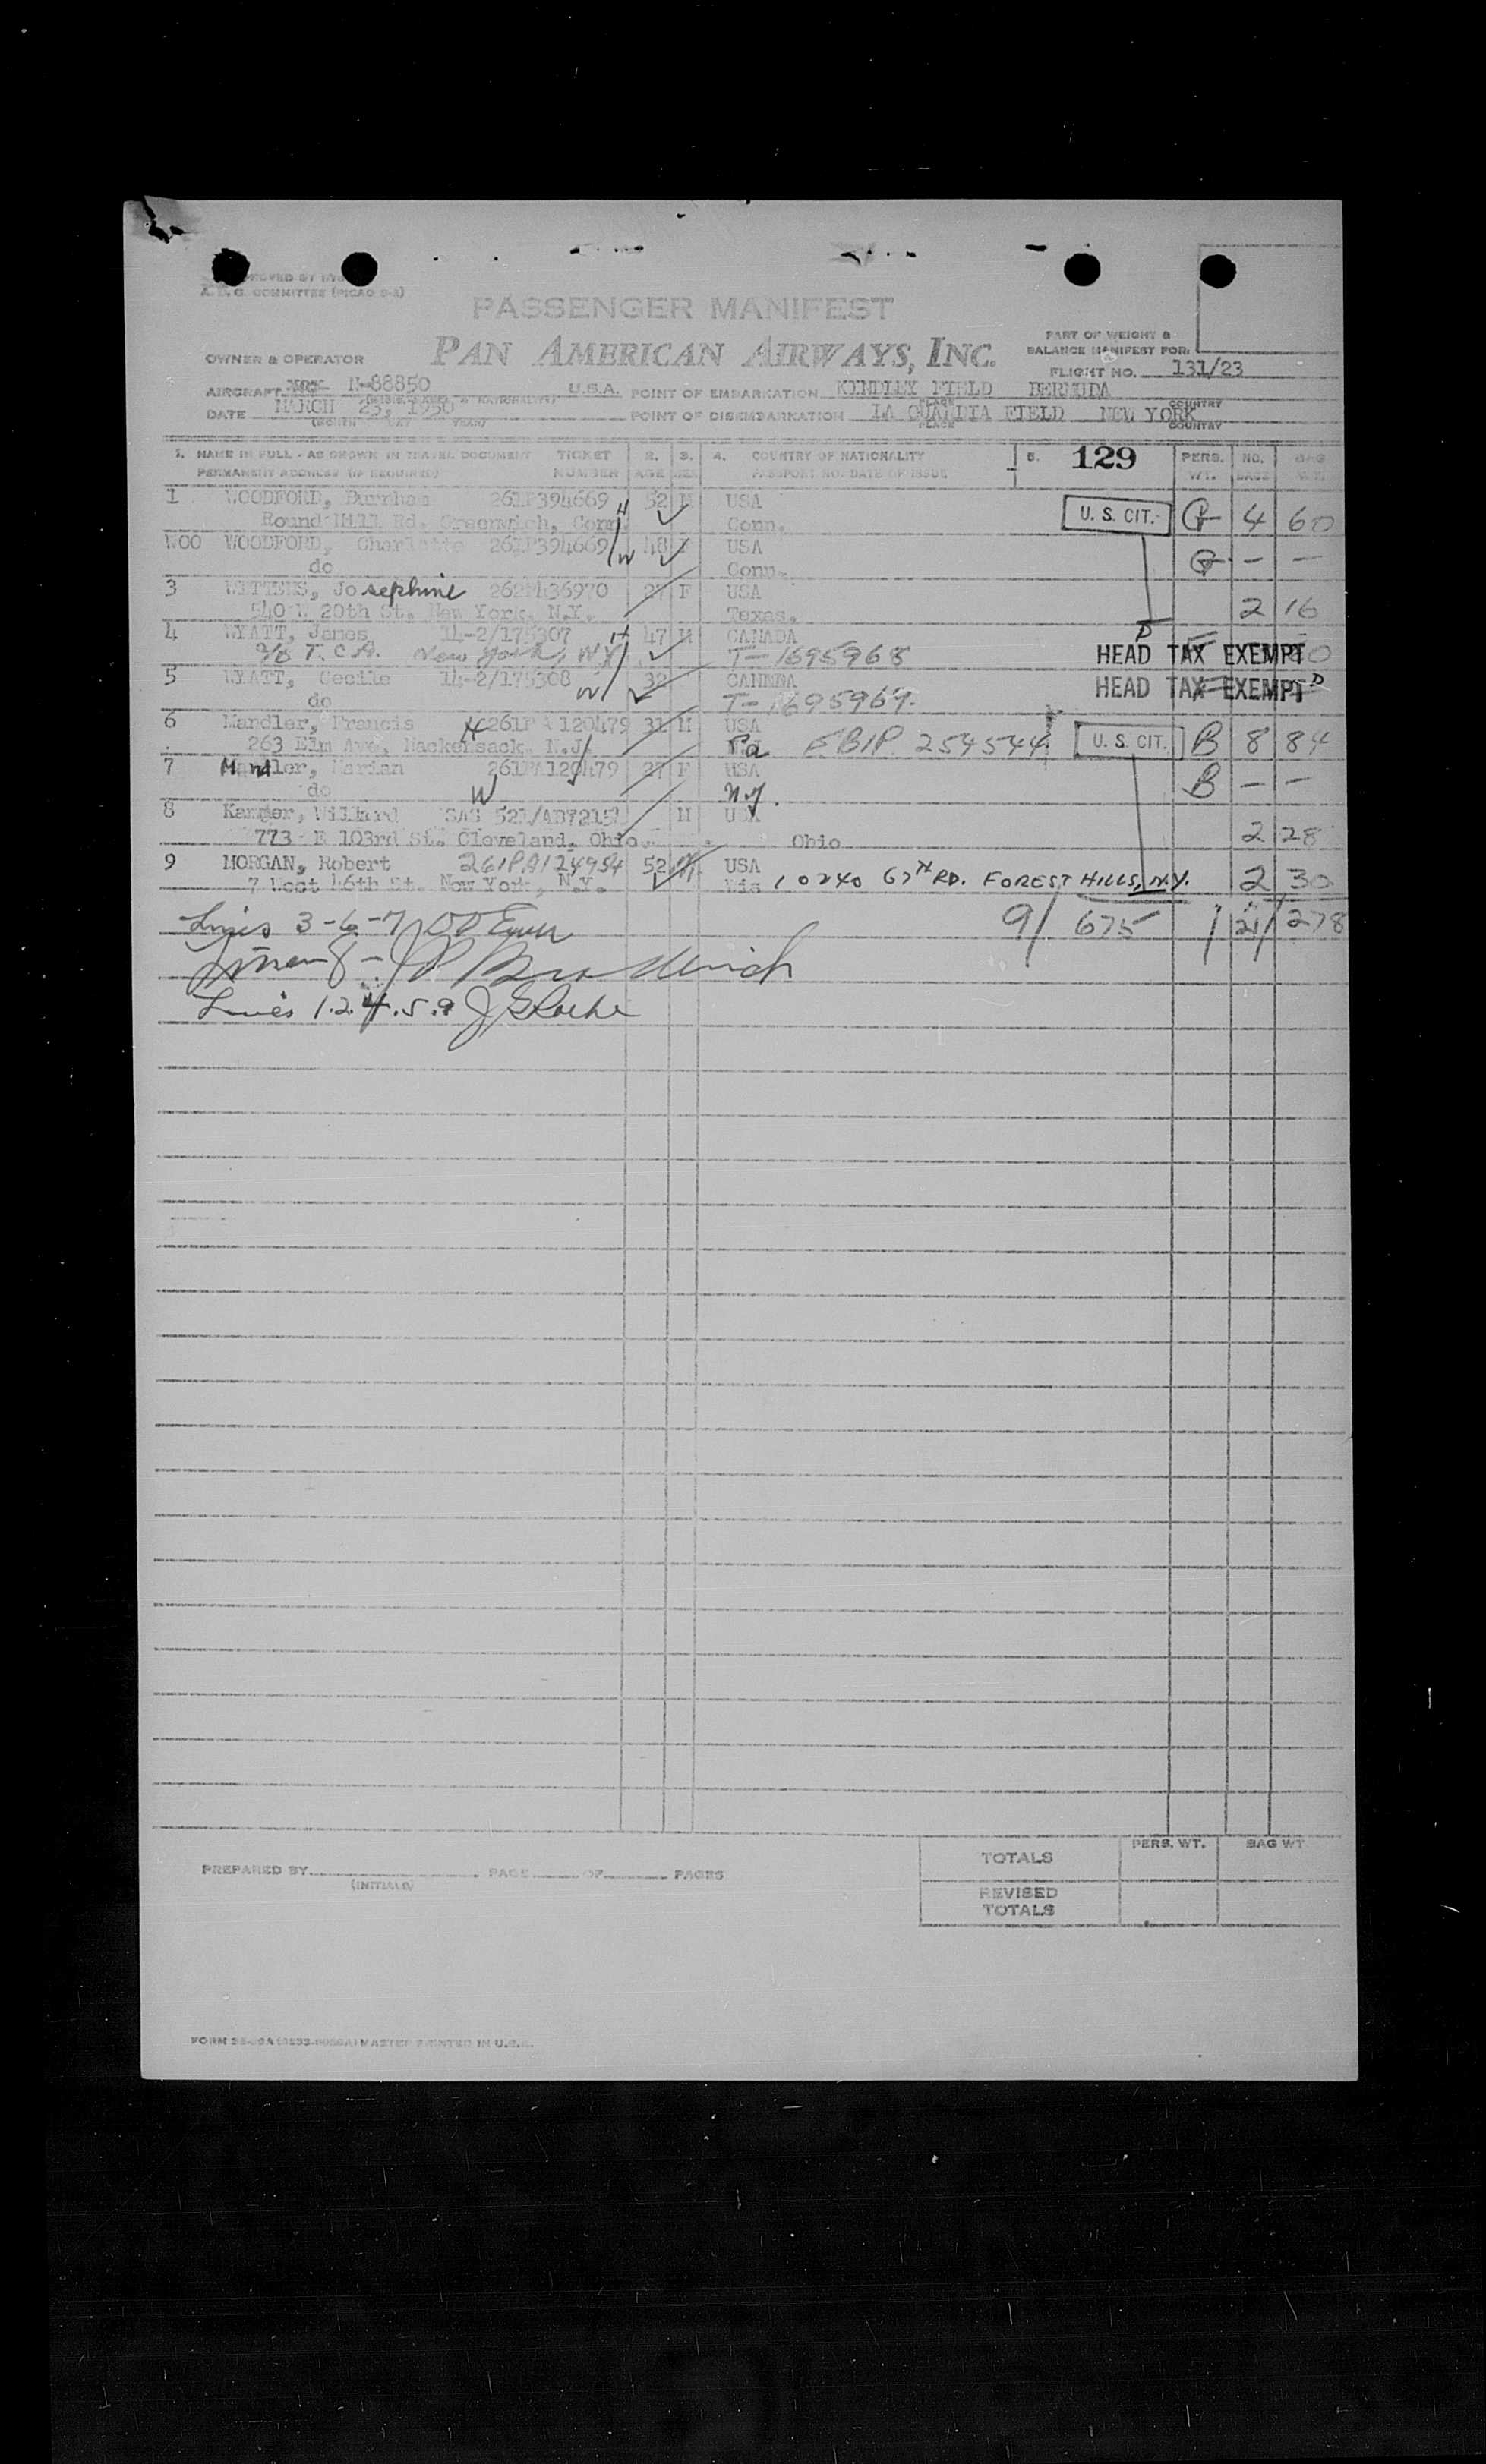 A. T. C. COMMITTEE (PICAO 2-2)
PASSENGER MANIFEST
PAN AMERICAN AIRWAYS, INC.
PART OF WEIGHT &
BALANCE MANIFEST FOR:
OWNER & OPERATOR
FLIGHT NO. 131/23
AIRCRAFT N-88850 U.S.A. POINT OF EMBARKATION KINDLEY FIELD BERMUDA
PLACE COUNTRY
DATE MARCH 23, 1950 POINT OF DISEMBARKATION LA GUARDIA FIELD NEW YORK
(MONTH DAY YEAR) PLACE COUNTRY
1. NAME IN FULL - AS SHOWN IN TRAVEL DOCUMENT TICKET 2. 3. 4. COUNTRY OF NATIONALITY 5. 129 PERS. NO. BAG
PERMANENT ADDRESS (IF REQUIRED) NUMBER AGE SEX PASSPORT NO. DATE OF ISSUE WT. BAGS WT.
1 WOODFORD, Burnham 261P394669 52 M USA
Round Hill Rd. Greenwich, Conn. H Conn. U. S. CIT. G 4 60
WOO WOODFORD, Charlotte 261P394669 48 F USA
do W Conn. G - -
3 Josephine 262P436970 27 F USA
540 E 20th St. New York, N.Y. Texas. 2 16
4 WYATT, James 14-2/175307 H 47 M CANADA
c/o T.C.A. New York, NY T-1695968 HEAD TAX EXEMPT
5 WYATT, Cecile 14-2/175308 W 32 CANADA HEAD TAX EXEMPT
do T-1695969.
6 Mandler, Francis H 261PA120479 31 M USA
263 Elm Ave, Hackensack, N.J. Pa EBIP 254544 U. S. CIT. B 8 84
7 Mandler, Marian 261PA120479 27 F USA
do W N.Y. B - -
8 Willard M USA
773 E 103rd St. Cleveland, Ohio. Ohio 2 28
9 MORGAN, Robert 261PA124954 52 M USA
7 West 46th St. New York, N.Y. Wis 10240 67TH RD. FOREST HILLS, N.Y. 2 30
Lines 3-6-7 9/ 675 / 21/ 278
Lines 1.2.4.5.9
TOTALS PERS. WT. BAG WT
PREPARED BY PAGE OF PAGES
(INITIALS)
REVISED
TOTALS